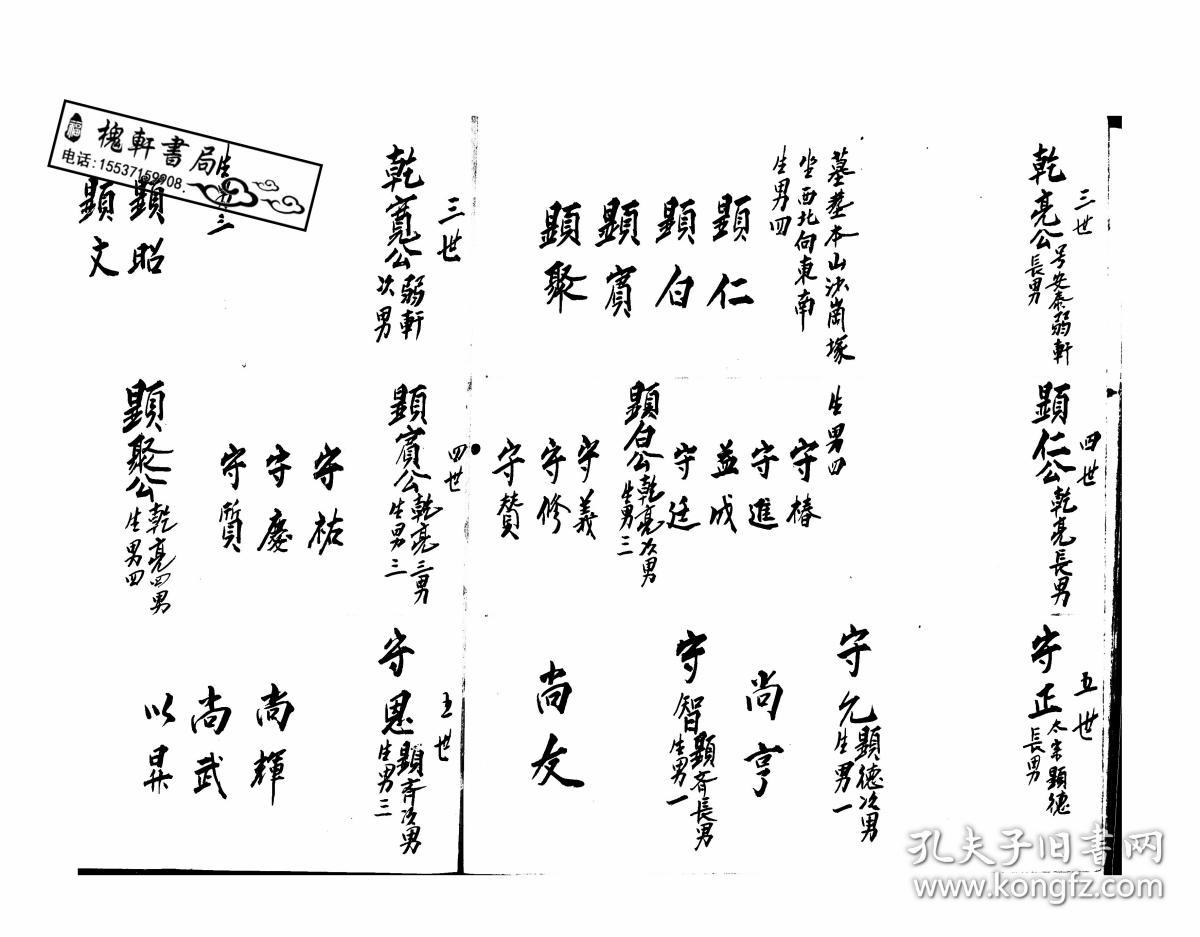 三世
乾亮公
号安泰弱軒
長男
墓基本山沙崗塚
坐西北向東南
生男四
顯仁
顯白
顯賓
顯聚
四世
顯仁公
乾亮長男
生男四
守椿
守進
益成
守廷
顯白公
乾亮次男
生男三
守義
守修
守贊
五世
守正
太宗顯德
長男
守允
顯德次男
生男一
尚亨
守智
顯齊長男
生男一
尚友
三世
乾寬公
弱軒
次男
生男三
顯昭
顯文
四世
顯賓公
乾亮三男
生男三
守祐
守慶
守質
顯聚公
乾亮四男
生男四
五世
守恩
顯齊次男
生男三
尚輝
尚武
以昇
福
槐軒書局
电话:15537159908.
孔夫子旧书网
www.kongfz.com